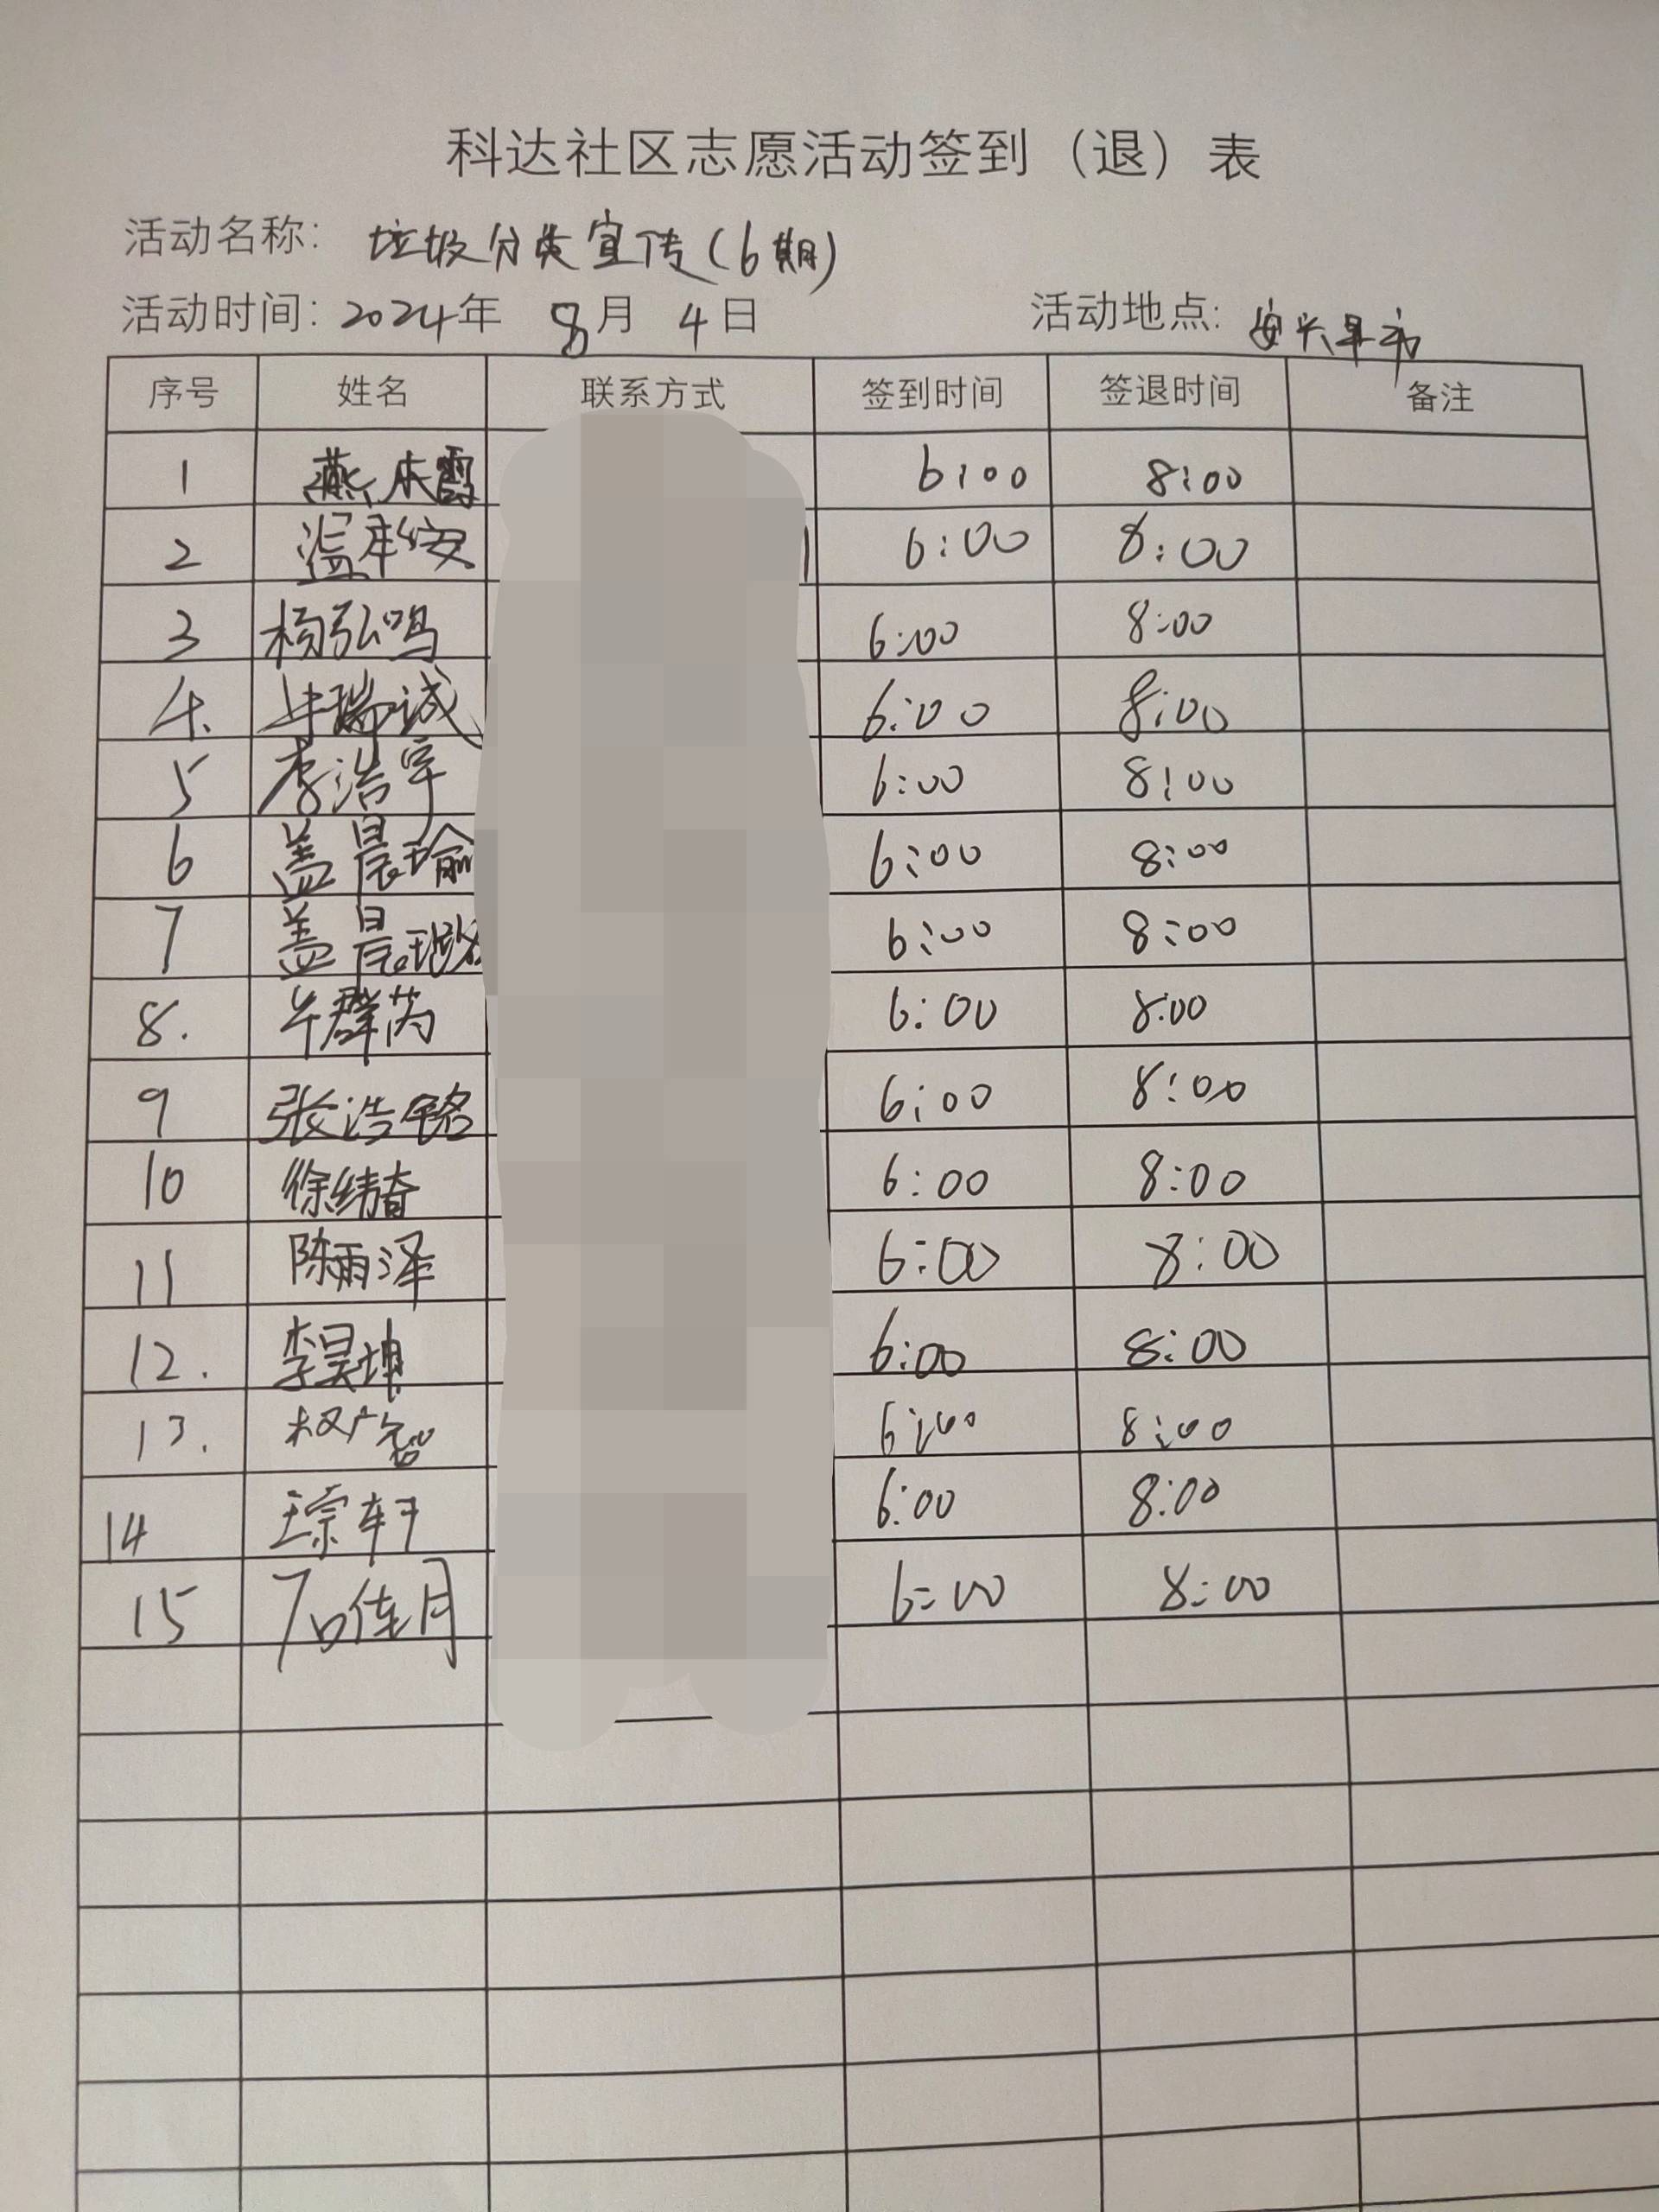 科达社区志愿活动签到（退）表
活动名称: 垃圾分类宣传(6期)
活动时间: 2024年 8月 4日 活动地点: 安兴早市
序号 姓名 联系方式 签到时间 签退时间 备注
1 燕木霞 6:00 8:00
2 6:00 8:00
3 杨弘鸣 6:00 8:00
4. 牛瑞诚 6:00 8:00
5 李浩宇 6:00 8:00
6 盖晨瑜 6:00 8:00
7 盖晨璐 6:00 8:00
8. 牟群芮 6:00 8:00
9 张浩铭 6:00 8:00
10 徐绮 6:00 8:00
11 陈雨泽 6:00 8:00
12. 李昊坤 6:00 8:00
13. 权广智 6:00 8:00
14 王宗轩 6:00 8:00
15 石佳月 6:00 8:00